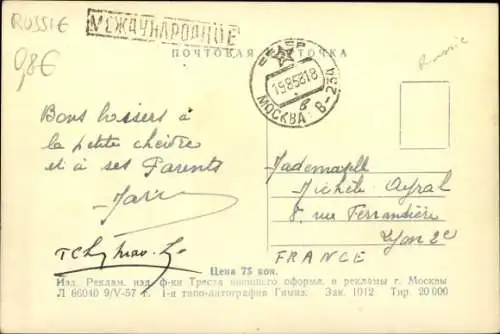 RUSSIE
0,8€
МЕЖДУНАРОДНОЕ
ПОЧТОВАЯ КАРТОЧКА
Russie
СССР
19858018
МОСКВА В-234
б
Bons baisers à
la petite
et à ses Parents
Mademoiselle
Michèle Ayral
8, rue Ferrandière
Lyon 2e
FRANCE
Цена 75 коп.
Изд. Реклам. изд. ф-ки Треста внешнего оформл. и рекламы г. Москвы
Л 66040 9/V-57 г. 1-я типо-литография Гимиз. Зак. 1012 Тир. 20 000